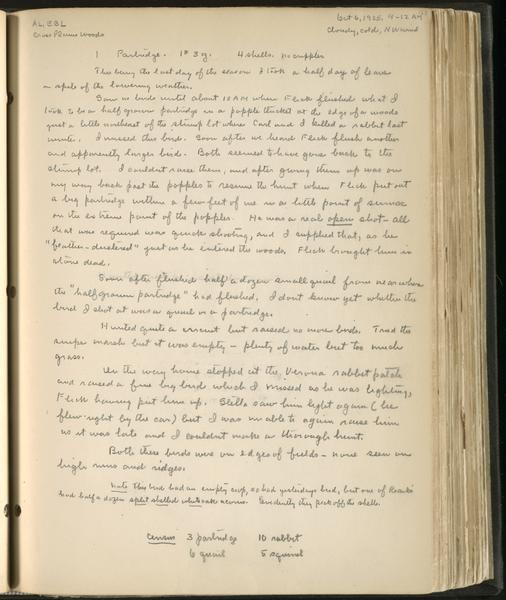 AL, EBL Oct 6, 1925, 9-12 AM
Cross Plains Woods Cloudy, cold, NW wind
1 Partridge. 1# 3 oz. 4 shells. no cripples
This being the last day of the season I took a half day of leave
in spite of the lowering weather.
Saw no birds until about 10 AM when Flick flushed what I
took to be a half grown partridge in a popple thicket at the edge of a woods
just a little northeast of the stump lot where Carl and I killed a rabbit last
winter. I missed this bird. Soon after we heard Flick flush another
and apparently larger bird. Both seemed to have gone back to the
stump lot. I couldn't raise them, and after giving them up was on
my way back past the popples to resume the hunt when Flick put out
a big partridge within a few feet of me in a little point of sumac
on the extreme point of the popples. He was a real open shot - all
that was required was quick shooting, and I supplied that, as he
"feather-dustered" just as he entered the woods. Flick brought him in
stone dead.
Soon after flushed half a dozen small quail from near where
the "half grown partridge" had flushed. I dont know yet whether the
bird I shot at was a quail or a partridge.
Hunted quite a circuit but raised no more birds. Tried the
snipe marsh but it was empty - plenty of water but too much
grass.
On the way home stopped at the Verona rabbit patch
and raised a fine big bird which I missed as he was lighting,
Flick having put him up. Stella saw him light again (he
flew right by the car) but I was unable to again raise him
as it was late and I couldn't make a thorough hunt.
Both these birds were on edges of fields - none seen on
high runs and ridges.
Note This bird had an empty crop, as had yesterdays bird, but one of
had half a dozen split shelled white oak acorns. Evidently they pick off the shells.
Census 3 partridge 10 rabbit
6 quail 5 squirrel